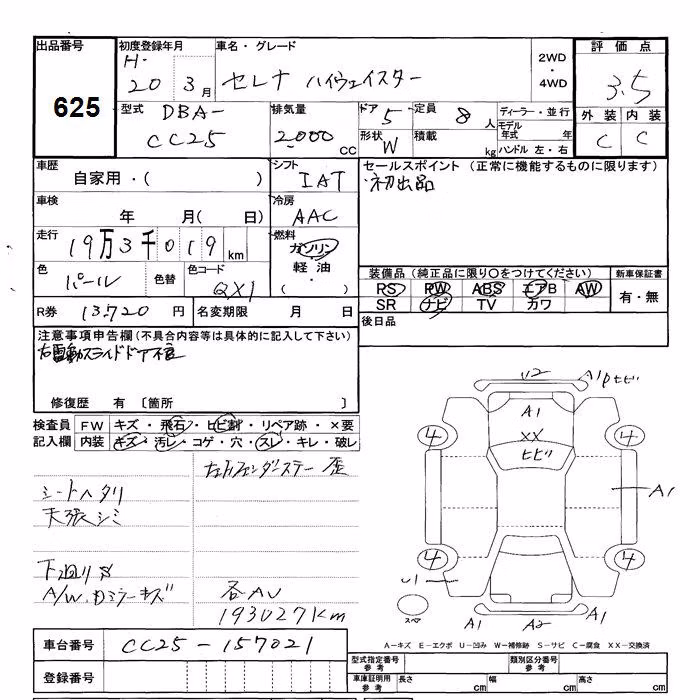 出品番号 初度登録年月 車名・グレード 2WD・4WD 評価点
625
H. 20 3月 セレナ ハイウェイスター 3.5
型式 排気量 ドア 定員 ディーラー・並行 外装 内装
DBA-CC25 2000cc 5 8人 モデル年式 年 C C
形状 W 積載 kg ハンドル 左・右
車歴 シフト セールスポイント (正常に機能するものに限ります)
自家用・( ) IAT 初出品
車検 冷房
年 月( 日) AAC
走行 燃料
19万3千019km ガソリン
軽油・( )
色 パール 色替 色コード QX1
装備品 (純正品に限り○をつけてください) 新車保証書
RS PW ABS エアB AW 有・無
SR ナビ TV カワ
R券 13,720円 名変期限 月 日
後日品
注意事項申告欄 (不具合内容等は具体的に記入して下さい)
右電動スライドドア不良
修復歴 有 〔箇所 〕
検査員記入欄 FW キズ・飛石・ヒビ割・リペア跡・×要
内装 キズ・汚レ・コゲ・穴・スレ・キレ・破レ
U2 A1
A1
XX
ヒビリ
4 4
A1
4 4
U1
スペア
A1 A2 A1
シートヘタリ
天張シミ
下廻りサ
A/W, Dミラーキズ
193027km
車台番号 CC25-157021
登録番号
A-キズ E-エクボ U-凹み W-補修跡 S-サビ C-腐食 XX-交換済
型式指定番号 参考 類別区分番号 参考
車庫証明用 参考 長さ cm 幅 cm 高さ cm